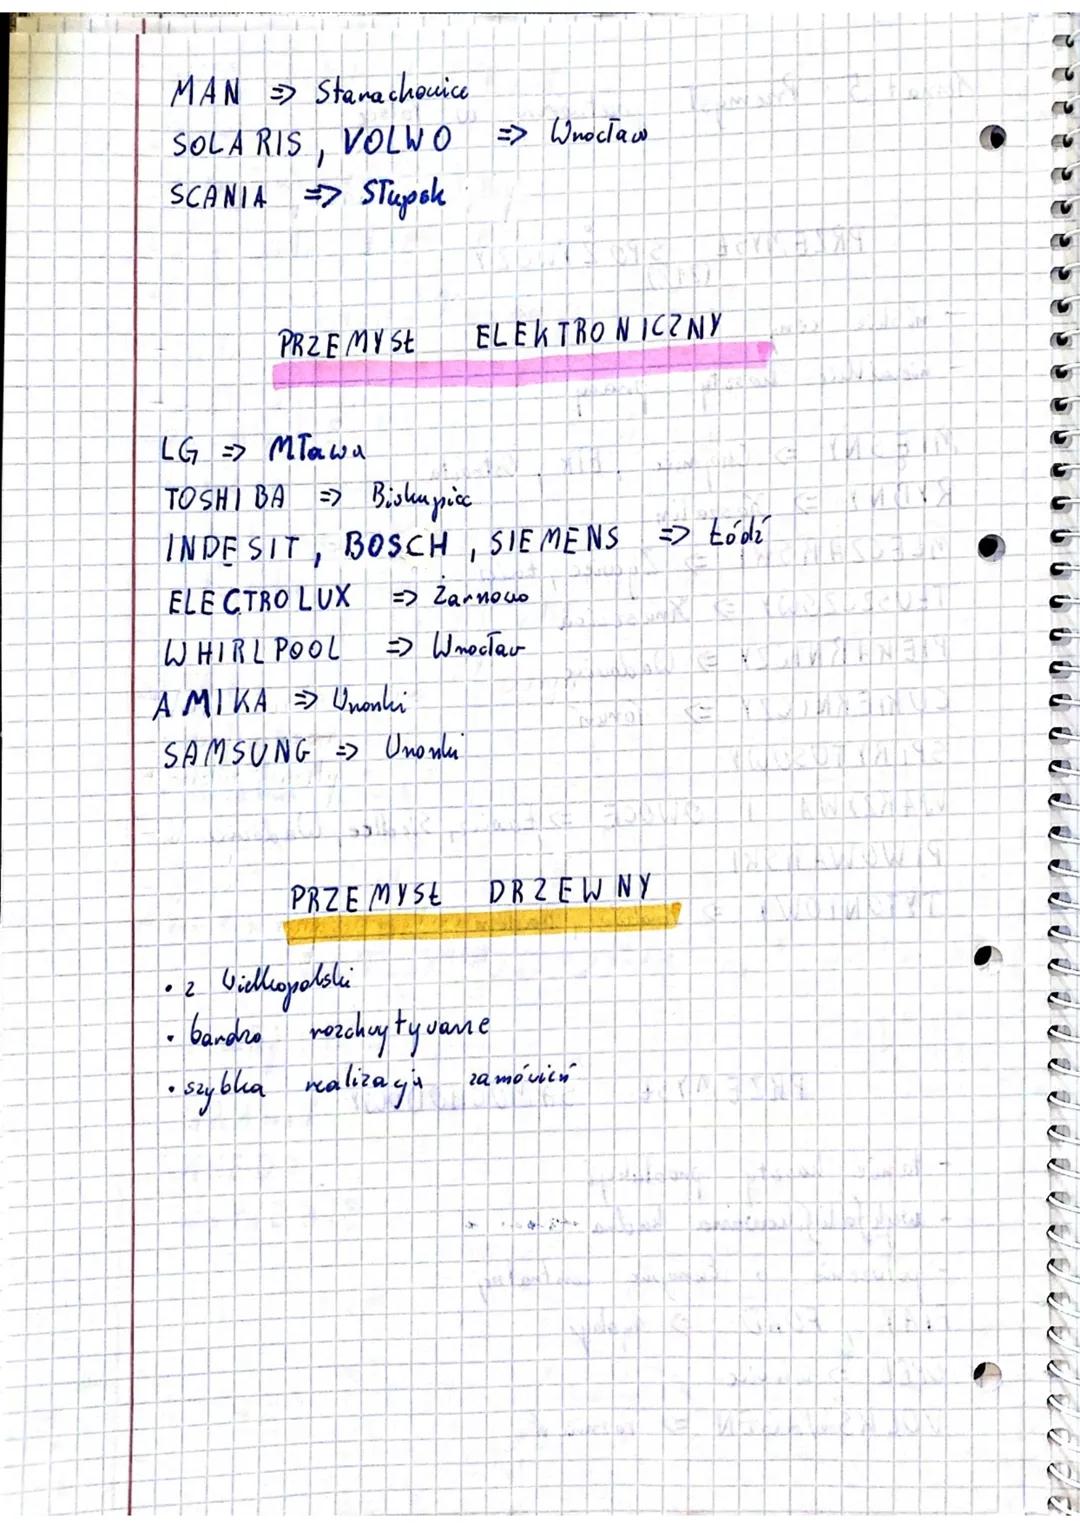 MAN => Starachowice
SOLARIS, VOLWO => Wrocław
SCANIA => Słupsk
PRZEMYSŁ ELEKTRONICZNY
LG => Mława
TOSHIBA => Biskupice
INDESIT, BOSCH, SIEMENS => Łódź
ELECTROLUX => Żarnowo
WHIRLPOOL => Wrocław
AMIKA => Wronki
SAMSUNG => Wronki
PRZEMYSŁ DRZEWNY
• z Wielkopolski
• bardzo rozchwytywane
• szybka realizacja zamówień